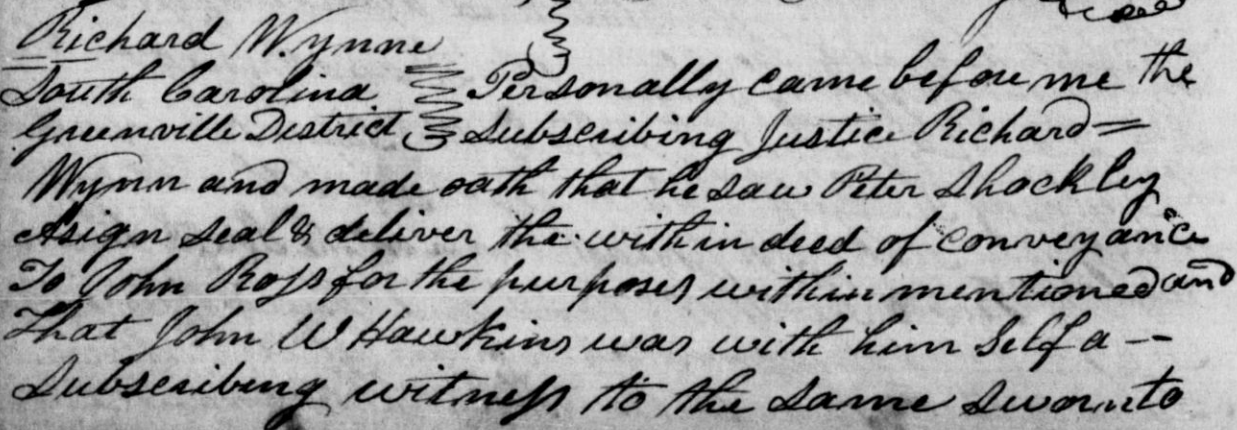 Richard Wynne
South Carolina Personally came before me the
Greenville District Subscribing Justice Richard =
Wynn and made oath that he saw Peter Shockley
Asign Seal & deliver the within deed of conveyance
To John Ross for the purposes within mentioned and
That John W Hawkins was with him Self a --
Subscribing witness to the same sworn to